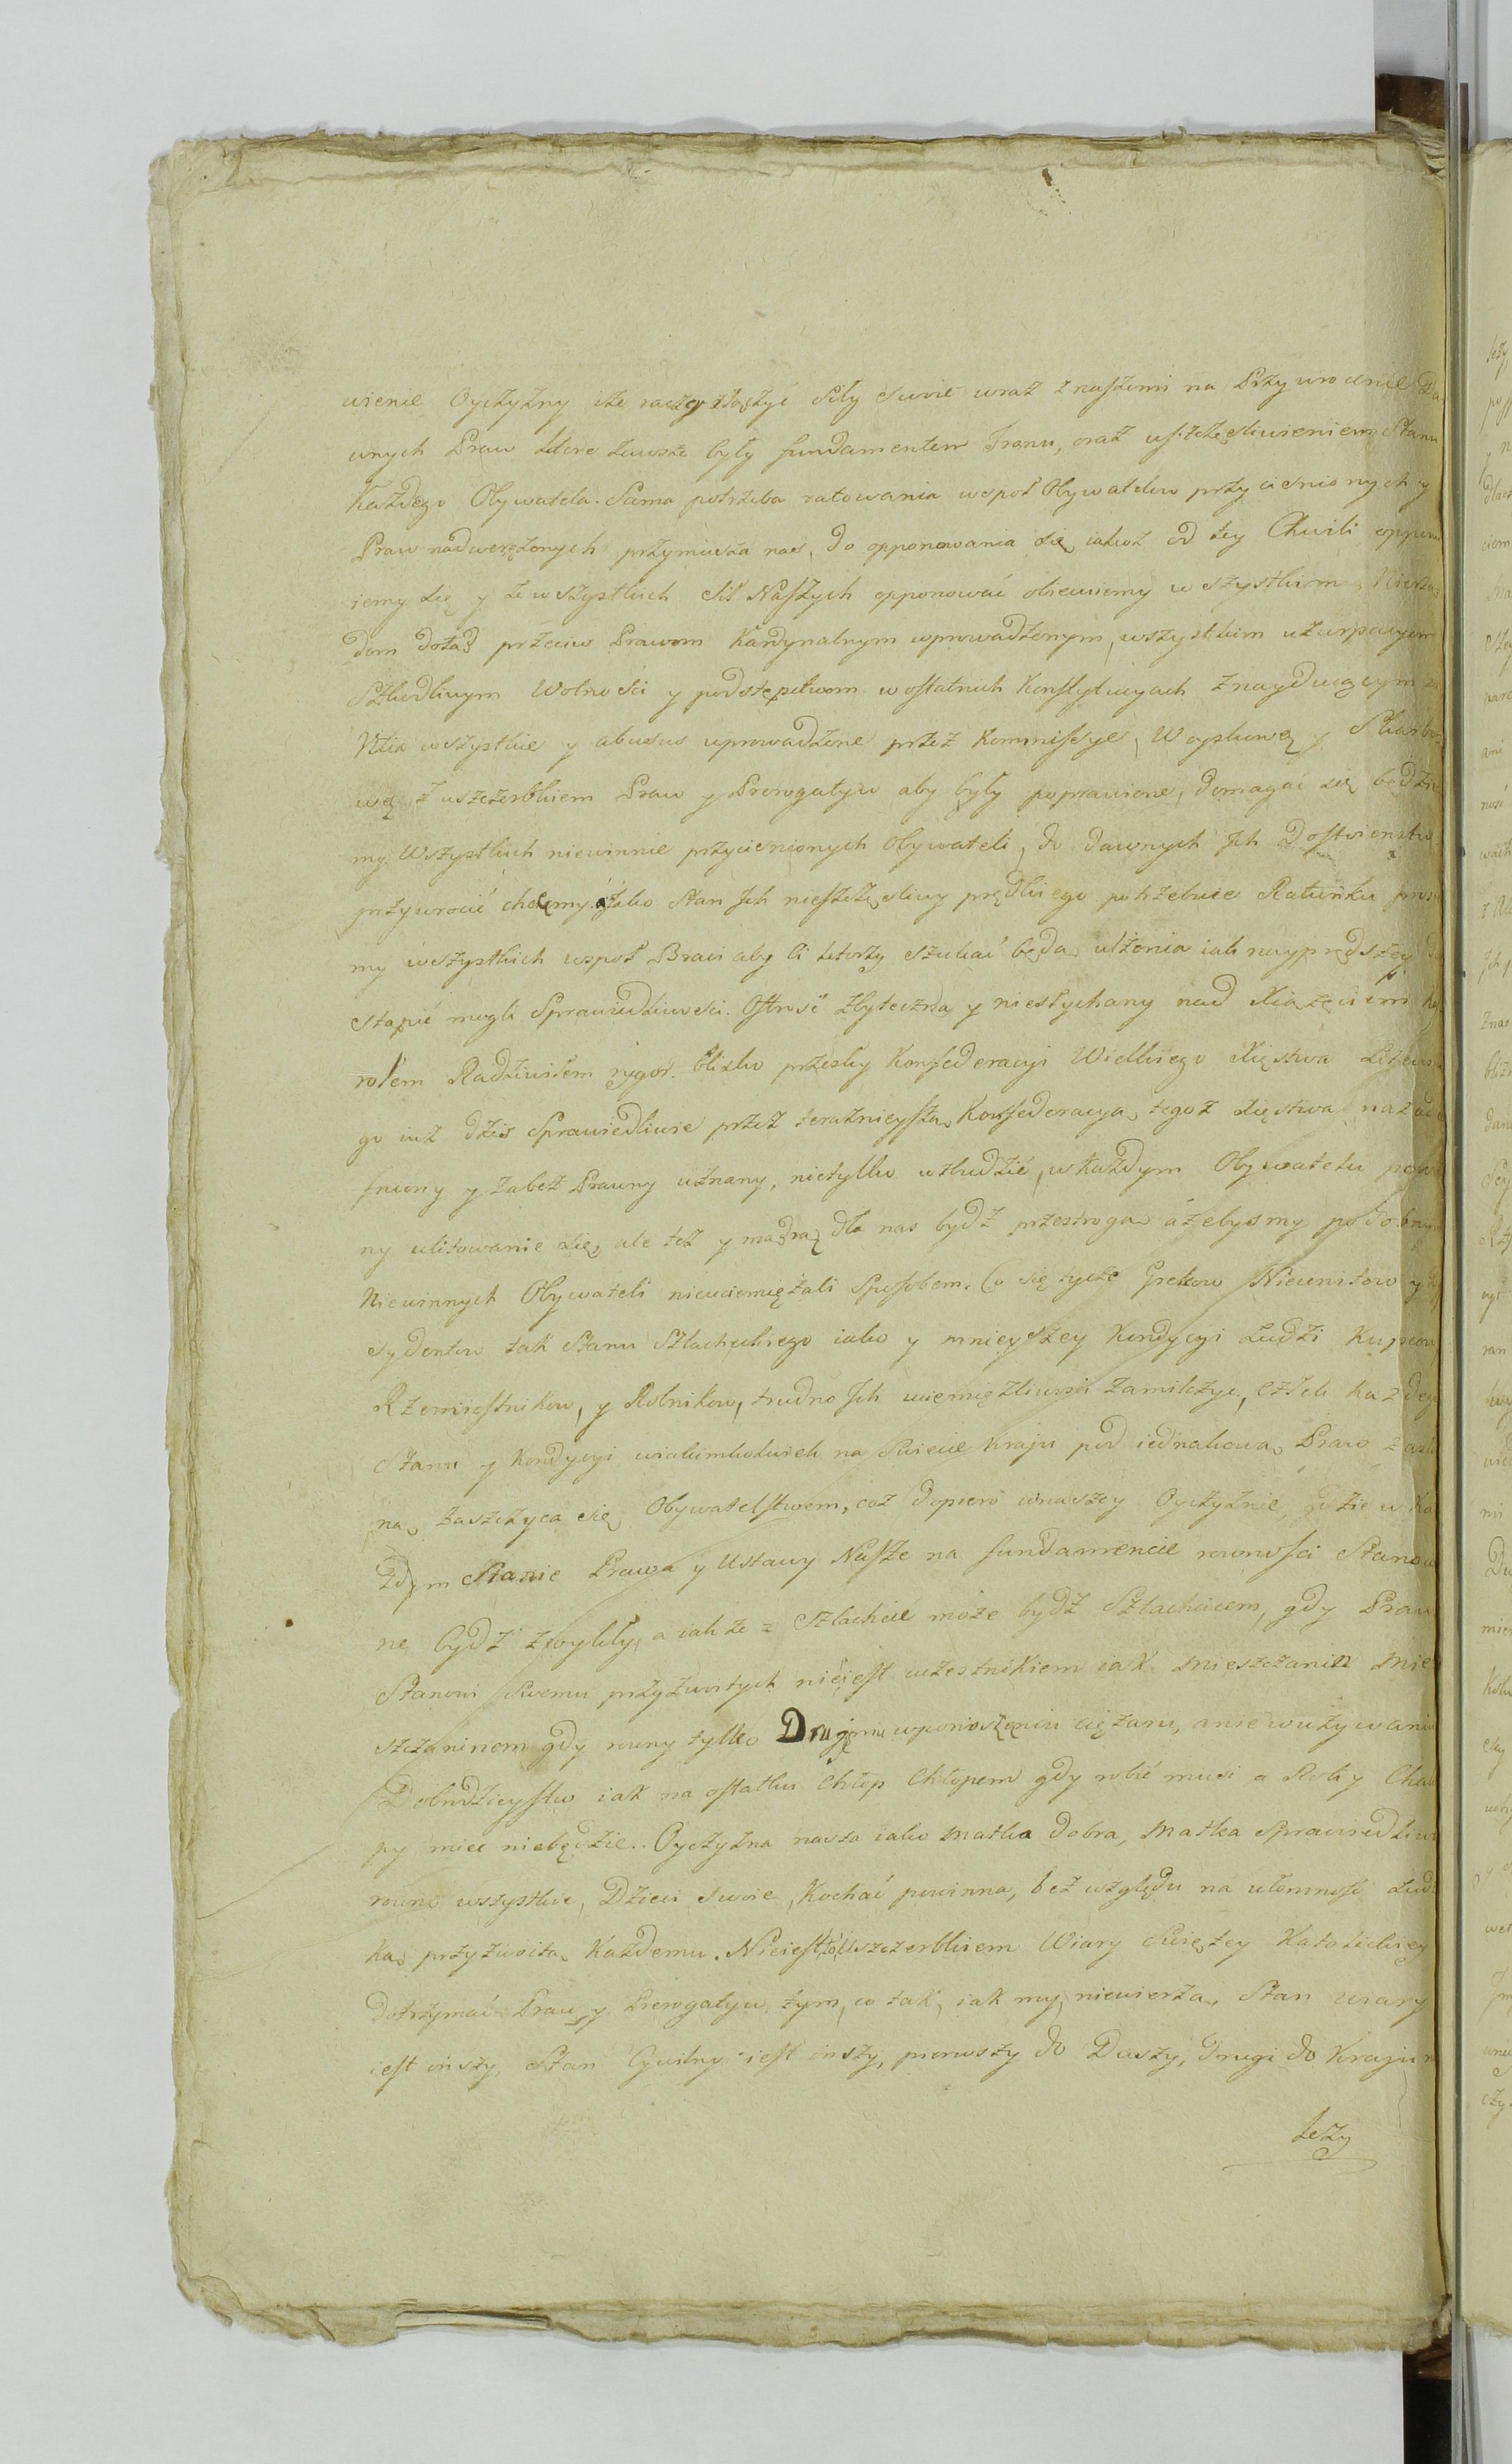 wienie Oyczyzny iże raczy złożyć Siły Swoie wraz znaszemi na Przywrocenie Da
wnych Praw ktore zawsze były fundamentem Tronu, oraz uszczęsliwieniem Stanu
Każdego Obywatela. Sama potrzeba ratowania wspoł Obywatelow przycisnionych y
Praw nadwerężonych przymusza nas, do opponowania się iakoż od tey Chwili oppon
iemy się y ze wszystkich Sił Naszych opponować obiecuiemy wszystkim Nierzą
dom dotąd przeciw Prawom Kardynalnym wprowadzonym, wszystkim uzurpacyom
Szkodliwym Wolności y podstępstwom wostatnich Konstytucyach znayduiącym
Vitia wszystkie y abusus wprowadzone przez Kommissye, Woyskową y Skarbo
wą z uszczerbkiem Praw y Prerogatyw aby były poprawione, domagać się będzie
my. Wszystkich niewinnie przycisnionych Obywateli, do dawnych Jch Dostoienstw
przywrocić chcemy. Jako Stan Jch nieszczęsliwy prędkiego potrzebuie Ratunku prosi
my wszystkich wspoł Braci aby Ci ktorzy szukać będą ulżenia iak nayprędszey do
stąpić mogli Sprawiedliwosci. Ostrość zbyteczna y niesłychany nad Xiązęciem Ka
rolem Radziwiłem rygor blisko przeszłey Konfederacyi Wielkiego Xięstwa Litewskie
go iuż dziś Sprawiedliwie przez teraznieyszą Konfederacyą tegoż Xięstwa
y zabez Prawny uznany, nietylko wzbudzić w Każdym Obywatelu
ny ulitowanie się, ale też y mądrą dla nas bydź przestrogą ażebysmy podobnym
Niewinnych Obywateli nieuciemiężali Sposobem. Co się tycze Grekow Nieunitow y
sydentow tak Stanu Szlacheckiego iako y mnieyszey Kondycyi Ludzi Kupcow
Rzemiesnikow, y Rolnikow, trudno Jch uciemiężliwosci zamilczyć, Człek każdego
Stanu y Kondycyi wiakimkolwiek na Swiecie Kraju pod iednakową Praw
ną zaszczyca się Obywatelstwem, coż dopiero wnaszey Oyczyznie, gdzie w Ka
żdym Stanie Prawa y Ustawy Nasze na fundamencie rownosci Stanow
ne bydź zwykły, a iakże Szlachcic może bydź Szlachcicem, gdy Praw
Stanowi Swemu przyzwoitych nieiest uczestnikiem iak mieszczanin mie
szczaninem gdy rowny tylko Drugiemu wponoszeniu ciężaru, anie wużywaniu
Dobrodzieystw iak na ostatku Chłop Chłopem gdy robić musi a Roli y Chału
py miec niebędzie. Oyczyzna nasza iako matka dobra, matka Sprawiedliwa
rowno wszystkie, Dzieci Swoie, Kochać powinna, bez względu na ułomność Ludz
ką przyzwoitą Każdemu. Nieiest to Uszczerbkiem Wiary Swiętey Katolickiey
dotrzymać Praw y Prerogatyw tym, co tak, iak my, niewierzą, Stan wiary
iest inszy, Stan Cywilny iest inszy, pierwszy do Duszy, drugi do Kraju
leży